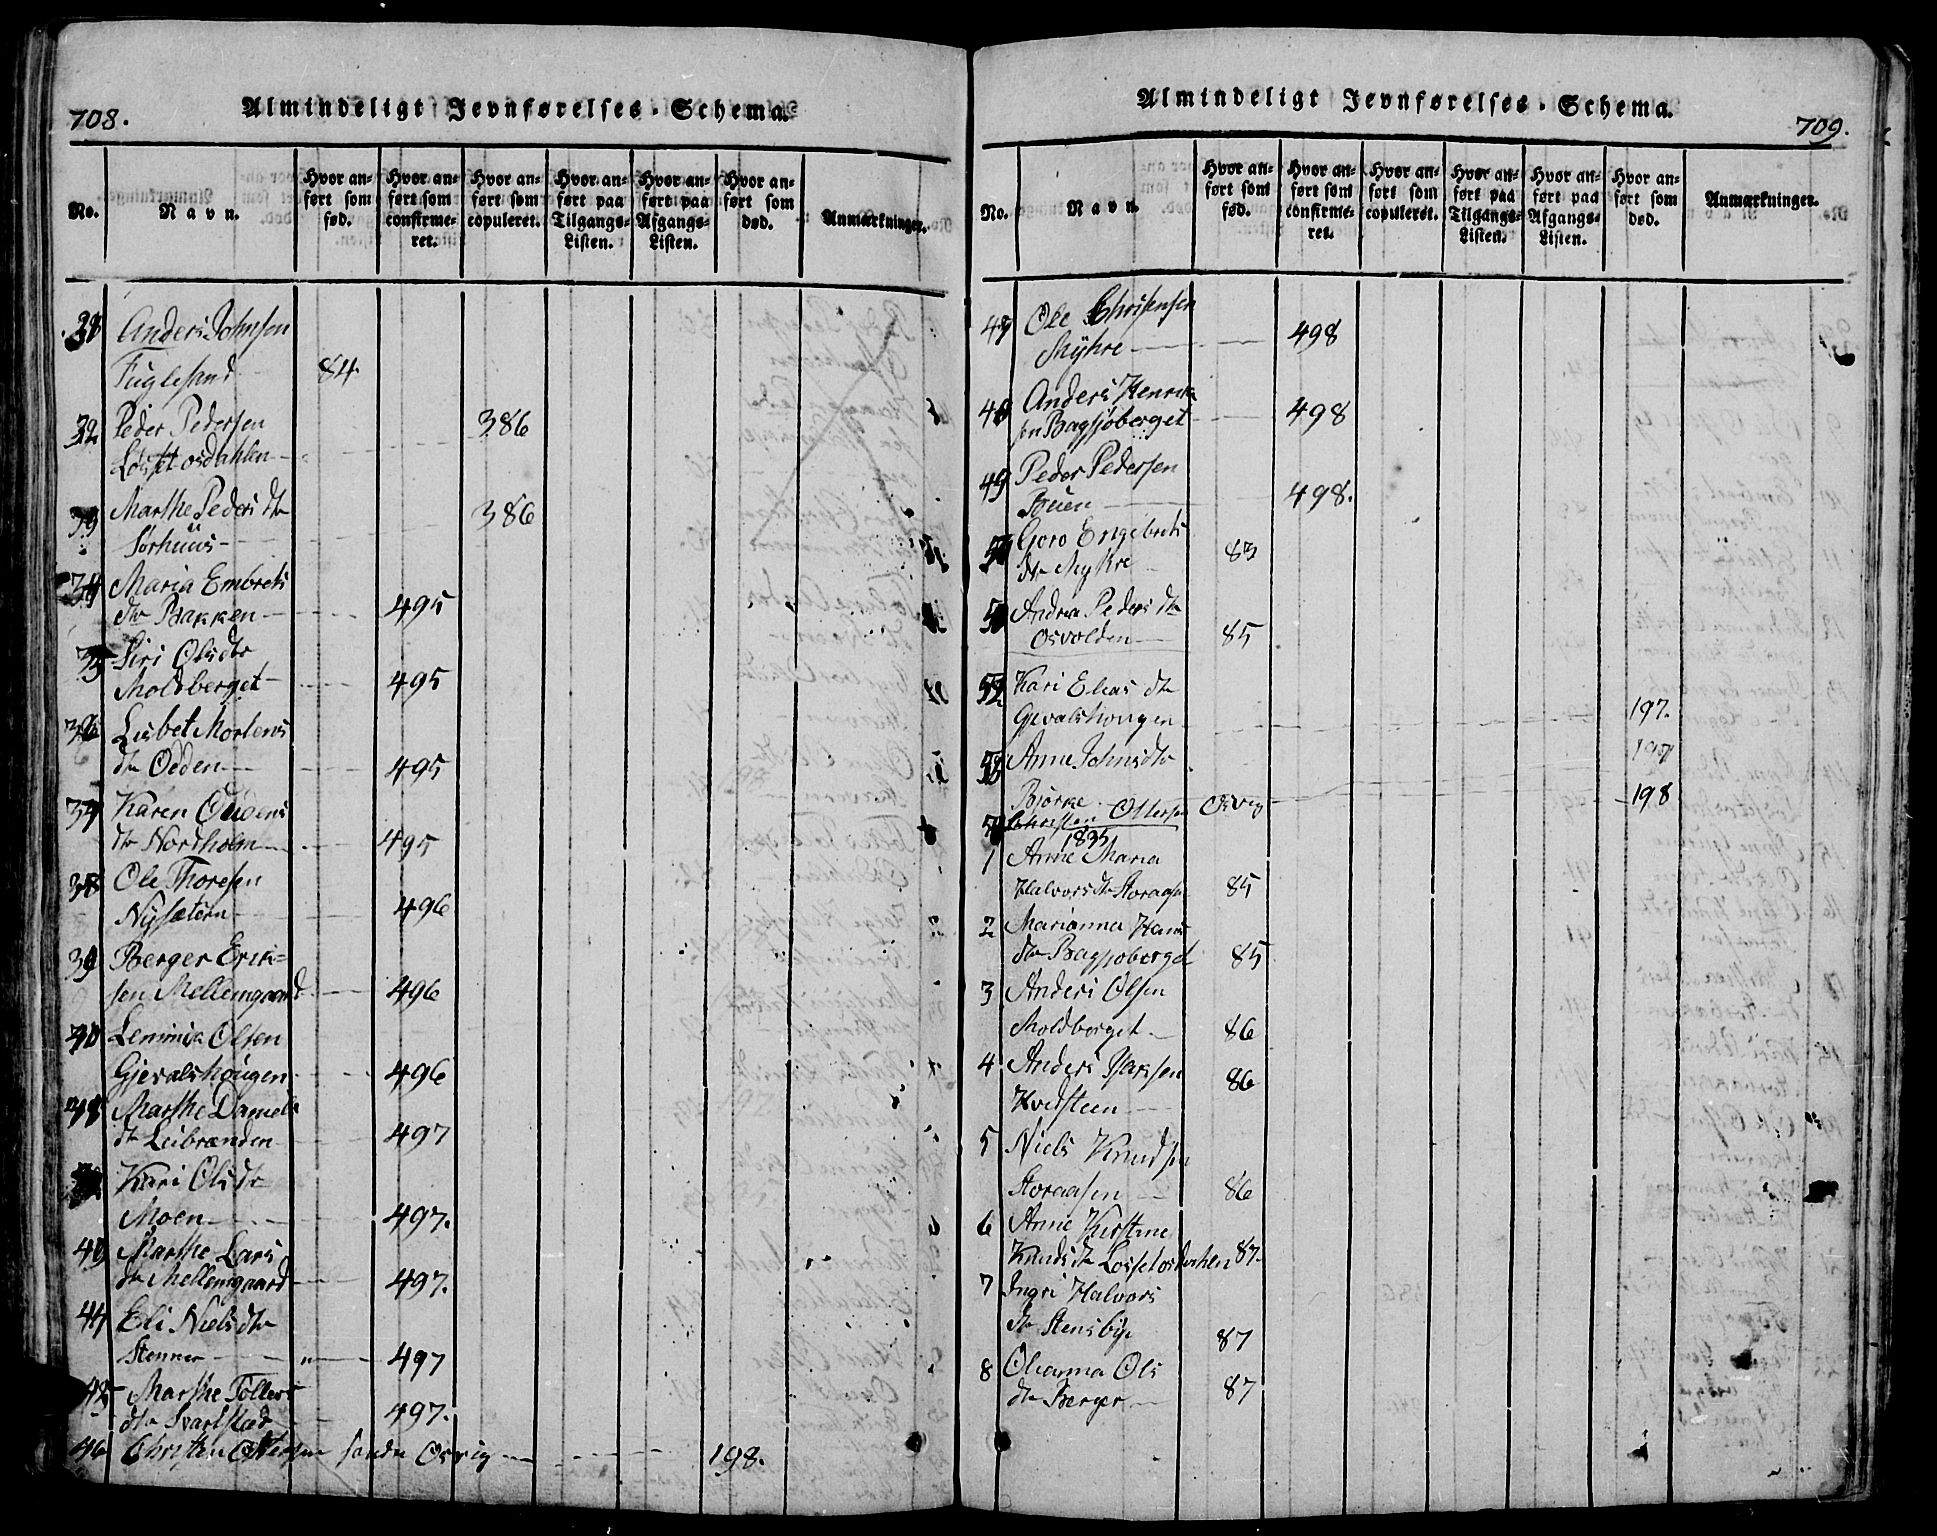 708.
Almindeligt Jevnførelses-Schema.
No.
Navn.
Hvor an-
ført som
fød.
Hvor an-
ført som
confirme-
ret.
Hvor an-
ført som
copuleret.
Hvor an-
ført paa
Tilgangs-
Listen.
Hvor an-
ført paa
Afgangs-
Listen.
Hvor an-
ført som
død.
Anmærkninger.
Anders Johnsen
Fuglesand 84
32 Peder Pedersen 386
Løsset osdahlen
Marthe Peders dtr 386
Sørhuus
34 Maria Embrets
dtr Bakken 495
35 Siri Olsdtr
Moldberget 495
36 Lisbet Mortens
dtr Odden 495
37 Karen Oudens
dtr Nordholm 495
38 Ole Thoresen
Nysætern 496
39 Berger Erik=
sen Mellemgaard 496
40 Lemmik Olsen
Gjevalshougen 496
Marthe Daniels
dtr Leibrænden 497
Kari Olsdtr
Moen 497.
Marthe Lars
dtr Mellemgaard 497.
44 Eli Nielsdtr
Stenner " 497
Marthe Tollevs
dtr Svarstad 497.
46 Christen Ottersen Osvig 198.
709.
Almindeligt Jevnførelses-Schema.
No.
Navn.
Hvor an-
ført som
fød.
Hvor an-
ført som
confirme-
ret.
Hvor an-
ført som
copuleret.
Hvor an-
ført paa
Tilgangs-
Listen.
Hvor an-
ført paa
Afgangs-
Listen.
Hvor an-
ført som
død.
Anmærkninger.
Ole Christensen
Myhre 498
Anders Henrik
sen Bagsjöberget 498
49 Peder Pedersen
Bouen 498.
Goro Engebrets
dtr Myhre 83
Andrea Peders dtr
Osvolden 85
52 Kari Elias dtr
Gjevalshougen 197.
Anne Johnsdtr 197
Bjørke 198
Christen Ottersen Osvig
1835
1 Anne Maria
Halvors dtr Storaasen 85
2 Marianna Hans
dtr Bagsjoberget 85
3 Anders Olsen
Moldberget 86
4 Anders Isaksen 86
Kvedsteen
5 Niels Knudsen
Storaasen 86
6 Anne Kirstine
Knuds dtr Lossetosdahlen 87.
7 Ingri Halvors
dtr Stensbye 87
8 Oleanna Ols
dtr Berger 87